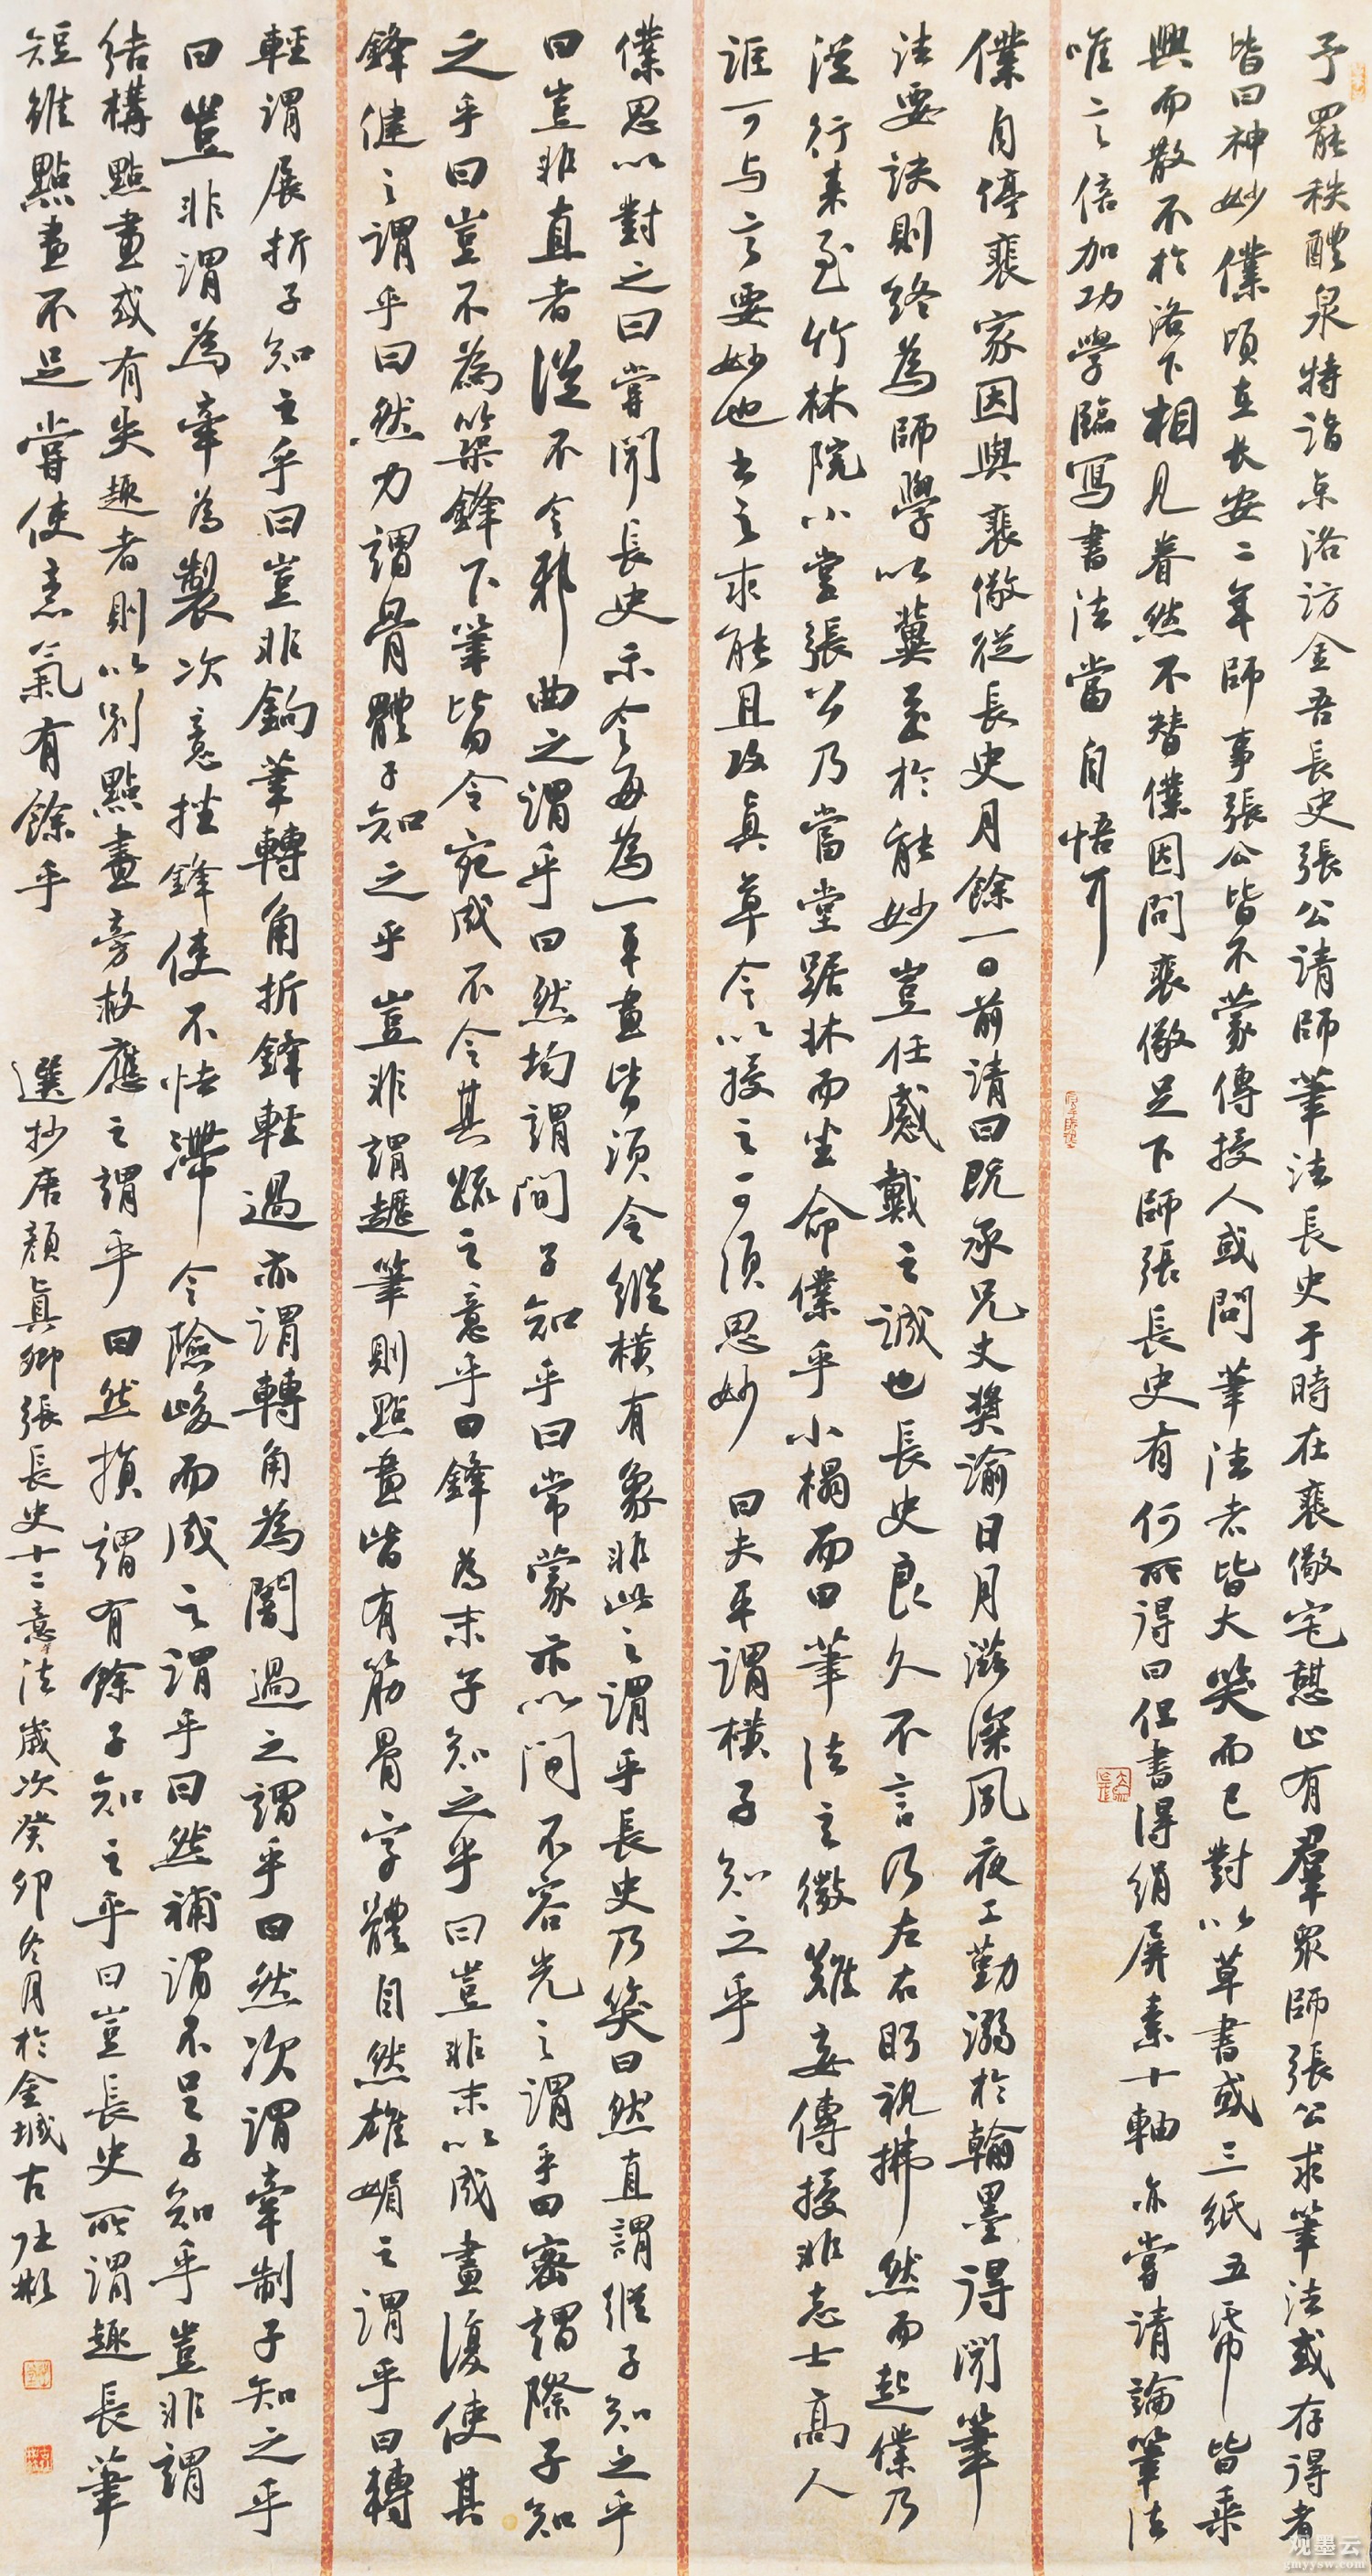 予罷秩醴泉特詣京洛訪金吾長史張公請師筆法長史于時在裴儆宅憩止有羣眾師張公求筆法或存得者
皆曰神妙僕頃在長安二年師事張公皆不蒙傳授人或問筆法者皆大笑而已對以草書或三紙五紙皆乘
興而散不於洛下相見眷然不替僕因問裴儆足下師張長史有何所得曰但書得絹屏素十軸亦當請論筆法
唯言倍加功學臨寫書法當自悟耳
僕自停裴家因與裴儆從長史月餘一日前請曰既承兄丈奬諭日月滋深夙夜工勤溺於翰墨得聞筆
法要訣則終為師學以冀至於能妙豈任感戴之誠也長史良久不言乃左右眄視拂然而起僕乃
從行來至竹林院小堂張公乃當堂踞牀而坐命僕乎小榻而曰筆法之微難妄傳授非志士高人
誰可与言要妙也書之求能且攻真草今以授之可須思妙曰夫平謂橫子知之乎
僕思以對之曰嘗聞長史示令每為一平畫皆須令縱橫有象非此之謂乎長史乃笑曰然直謂縱子知之乎
曰豈非直者從不令邪曲之謂乎曰然均謂間子知乎曰常蒙示以間不容光之謂乎曰密謂際子知
之乎曰豈不為築鋒下筆皆令宛成不令其疏之意乎曰鋒為末子知之乎曰豈非末以成畫復使其
鋒健之謂乎曰然力謂骨體子知之乎豈非謂趯筆則點畫皆有筋骨字體自然雄媚之謂乎曰轉
輕謂展折子知之乎曰豈非鉤筆轉角折鋒輕過亦謂轉角為闇過之謂乎曰然次謂牽制子知之乎
曰豈非謂為牽為製次意挫鋒使不怯滯令險峻而成之謂乎曰然補謂不足子知乎豈非謂
結構點畫或有失趣者則以別點畫旁救應之謂乎曰然損謂有餘子知之乎曰豈長史所謂趣長筆
短雖點畫不足嘗使意氣有餘乎
選抄唐顏真卿張長史十二意法歲次癸卯冬月於金城古
观墨云
gmyysw.com